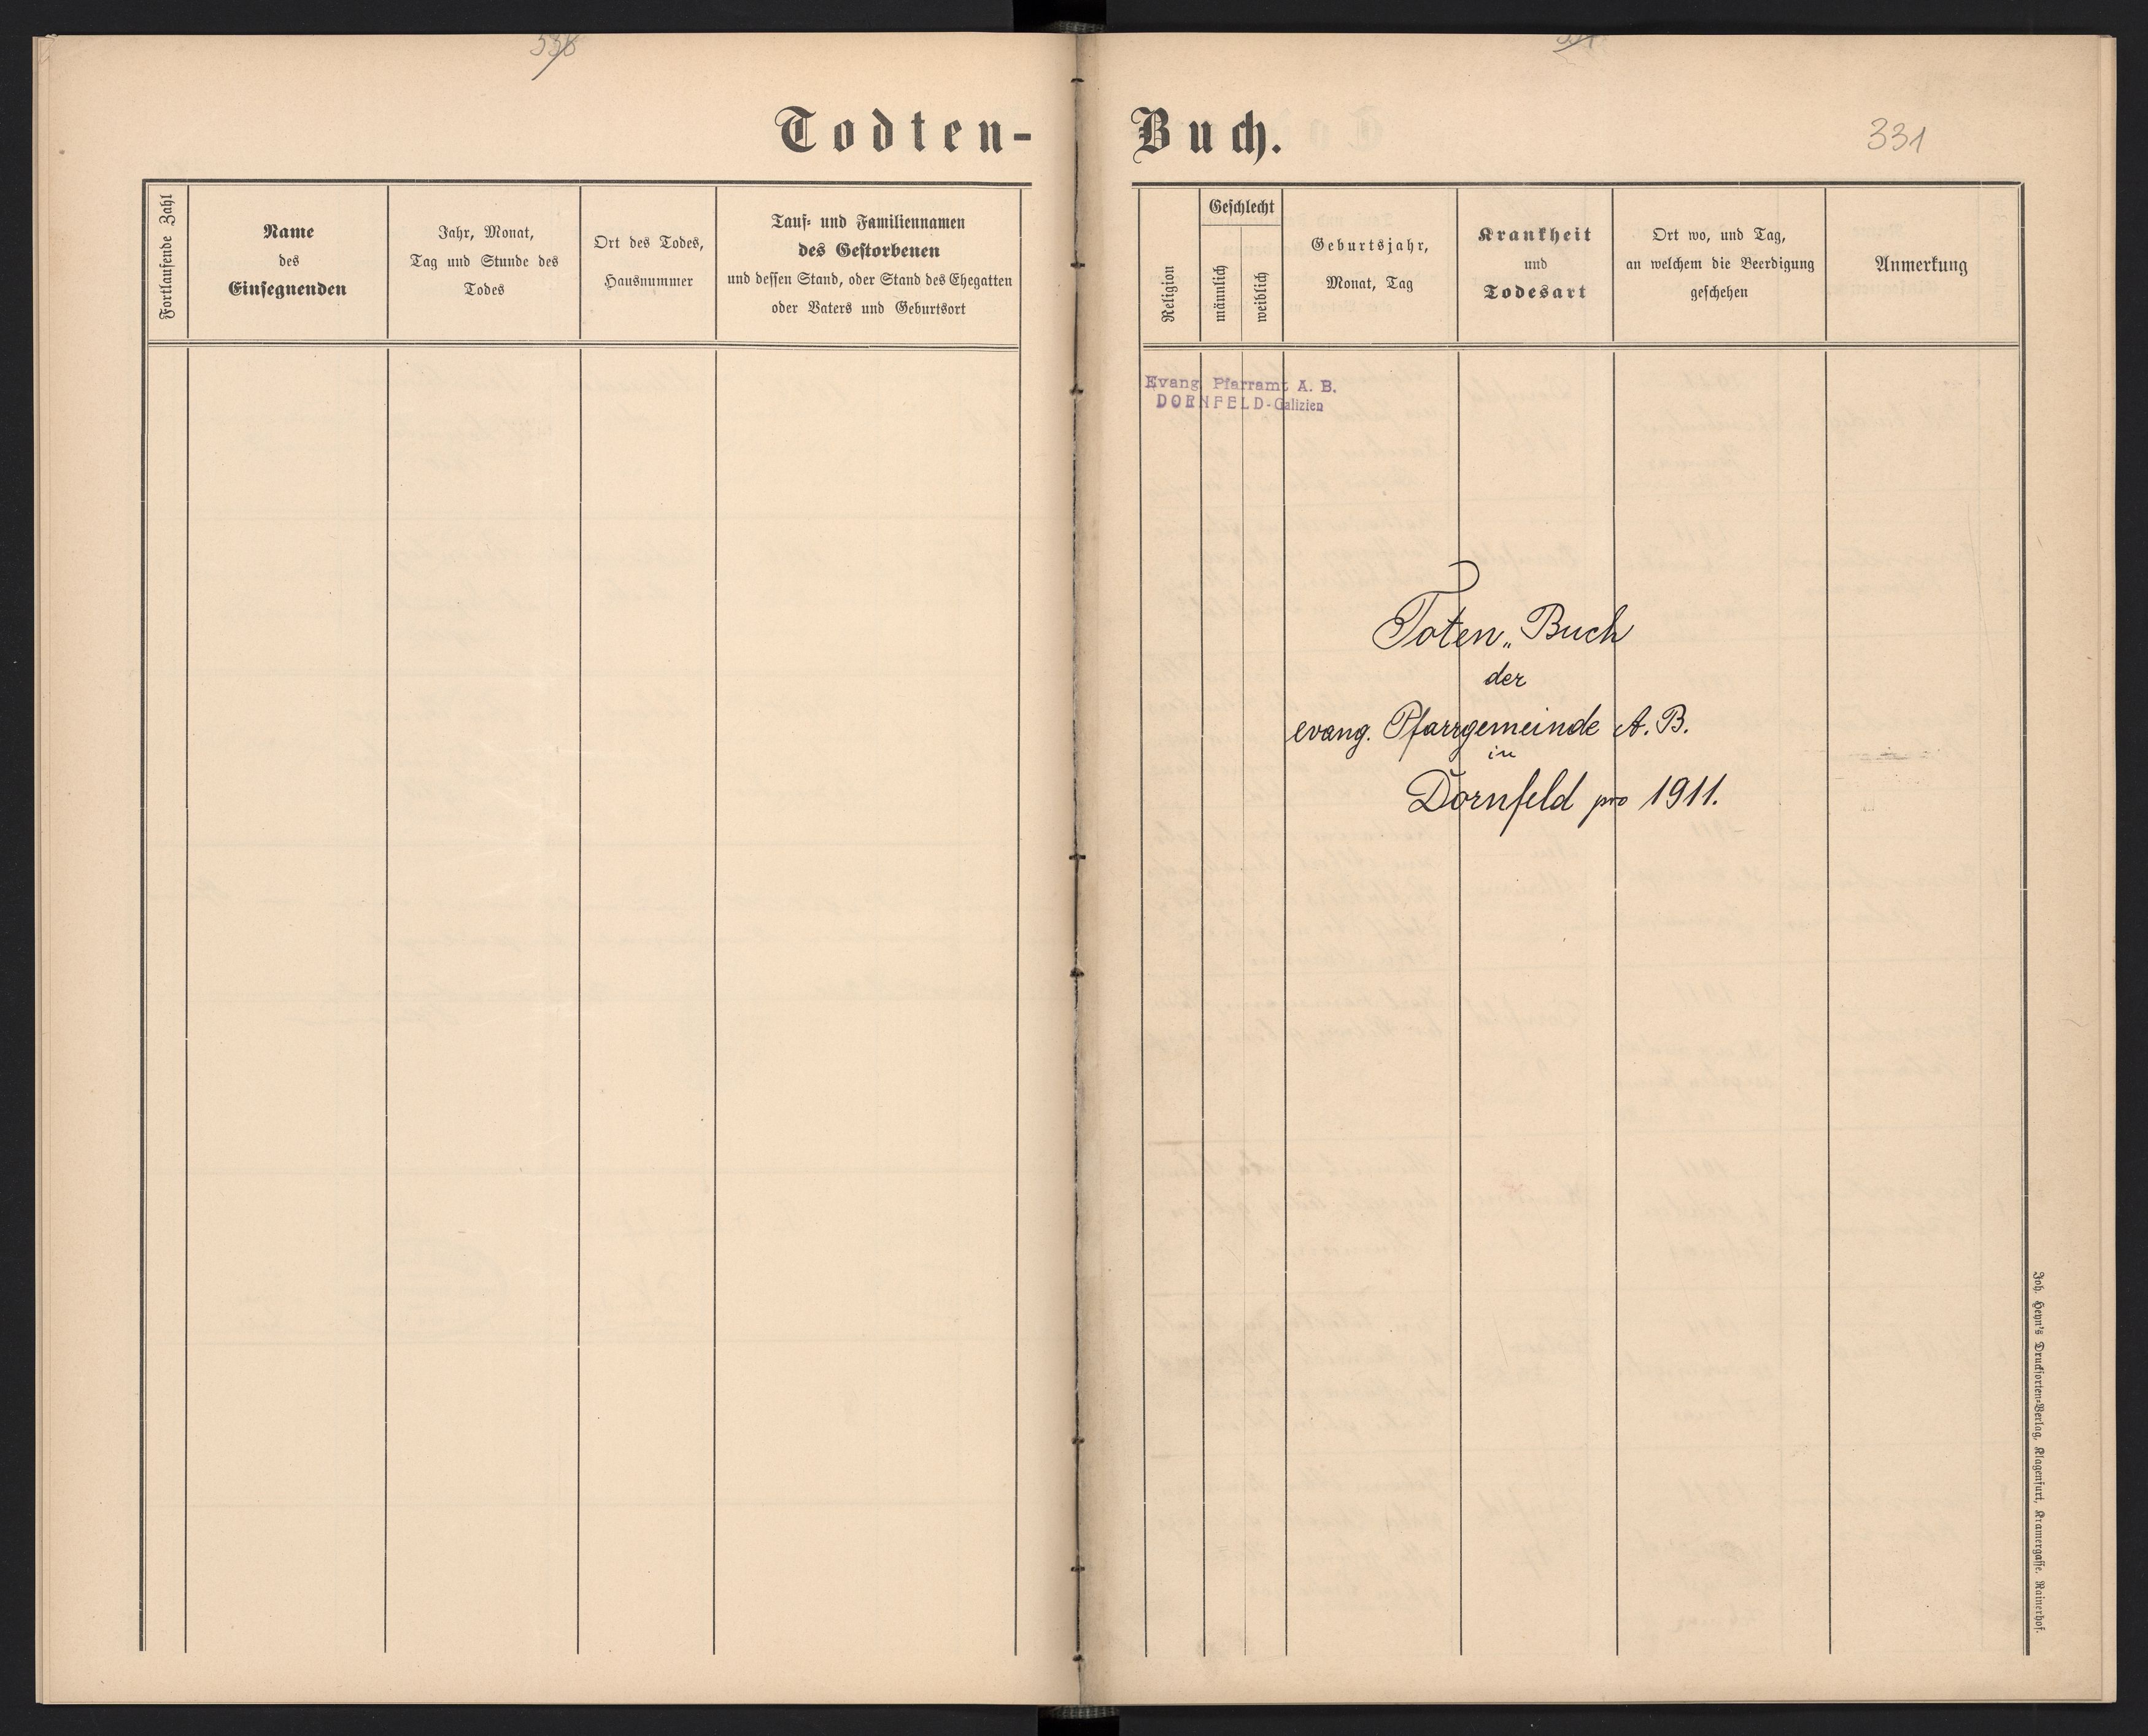 Todten-Buch.
331
Fortlaufende Zahl
Name
des
Einsegnenden
Jahr, Monat,
Tag und Stunde des
Todes
Ort des Todes,
Hausnummer
Tauf- und Familiennamen
des Gestorbenen
und dessen Stand, oder Stand des Ehegatten
oder Vaters und Geburtsort
Religion
Geschlecht
männlich
weiblich
Geburtsjahr,
Monat, Tag
Krankheit
und
Todesart
Ort wo, und Tag,
an welchem die Beerdigung
geschehen
Anmerkung
Evang. Pfarramt A. B.
DORNFELD-Galizien
Toten„Buch
der
evang. Pfarrgemeinde A. B.
in
Dornfeld pro 1911.
Joh. Heyn's Drucksorten-Verlag, Klagenfurt, Kramergasse, Rainerhof.